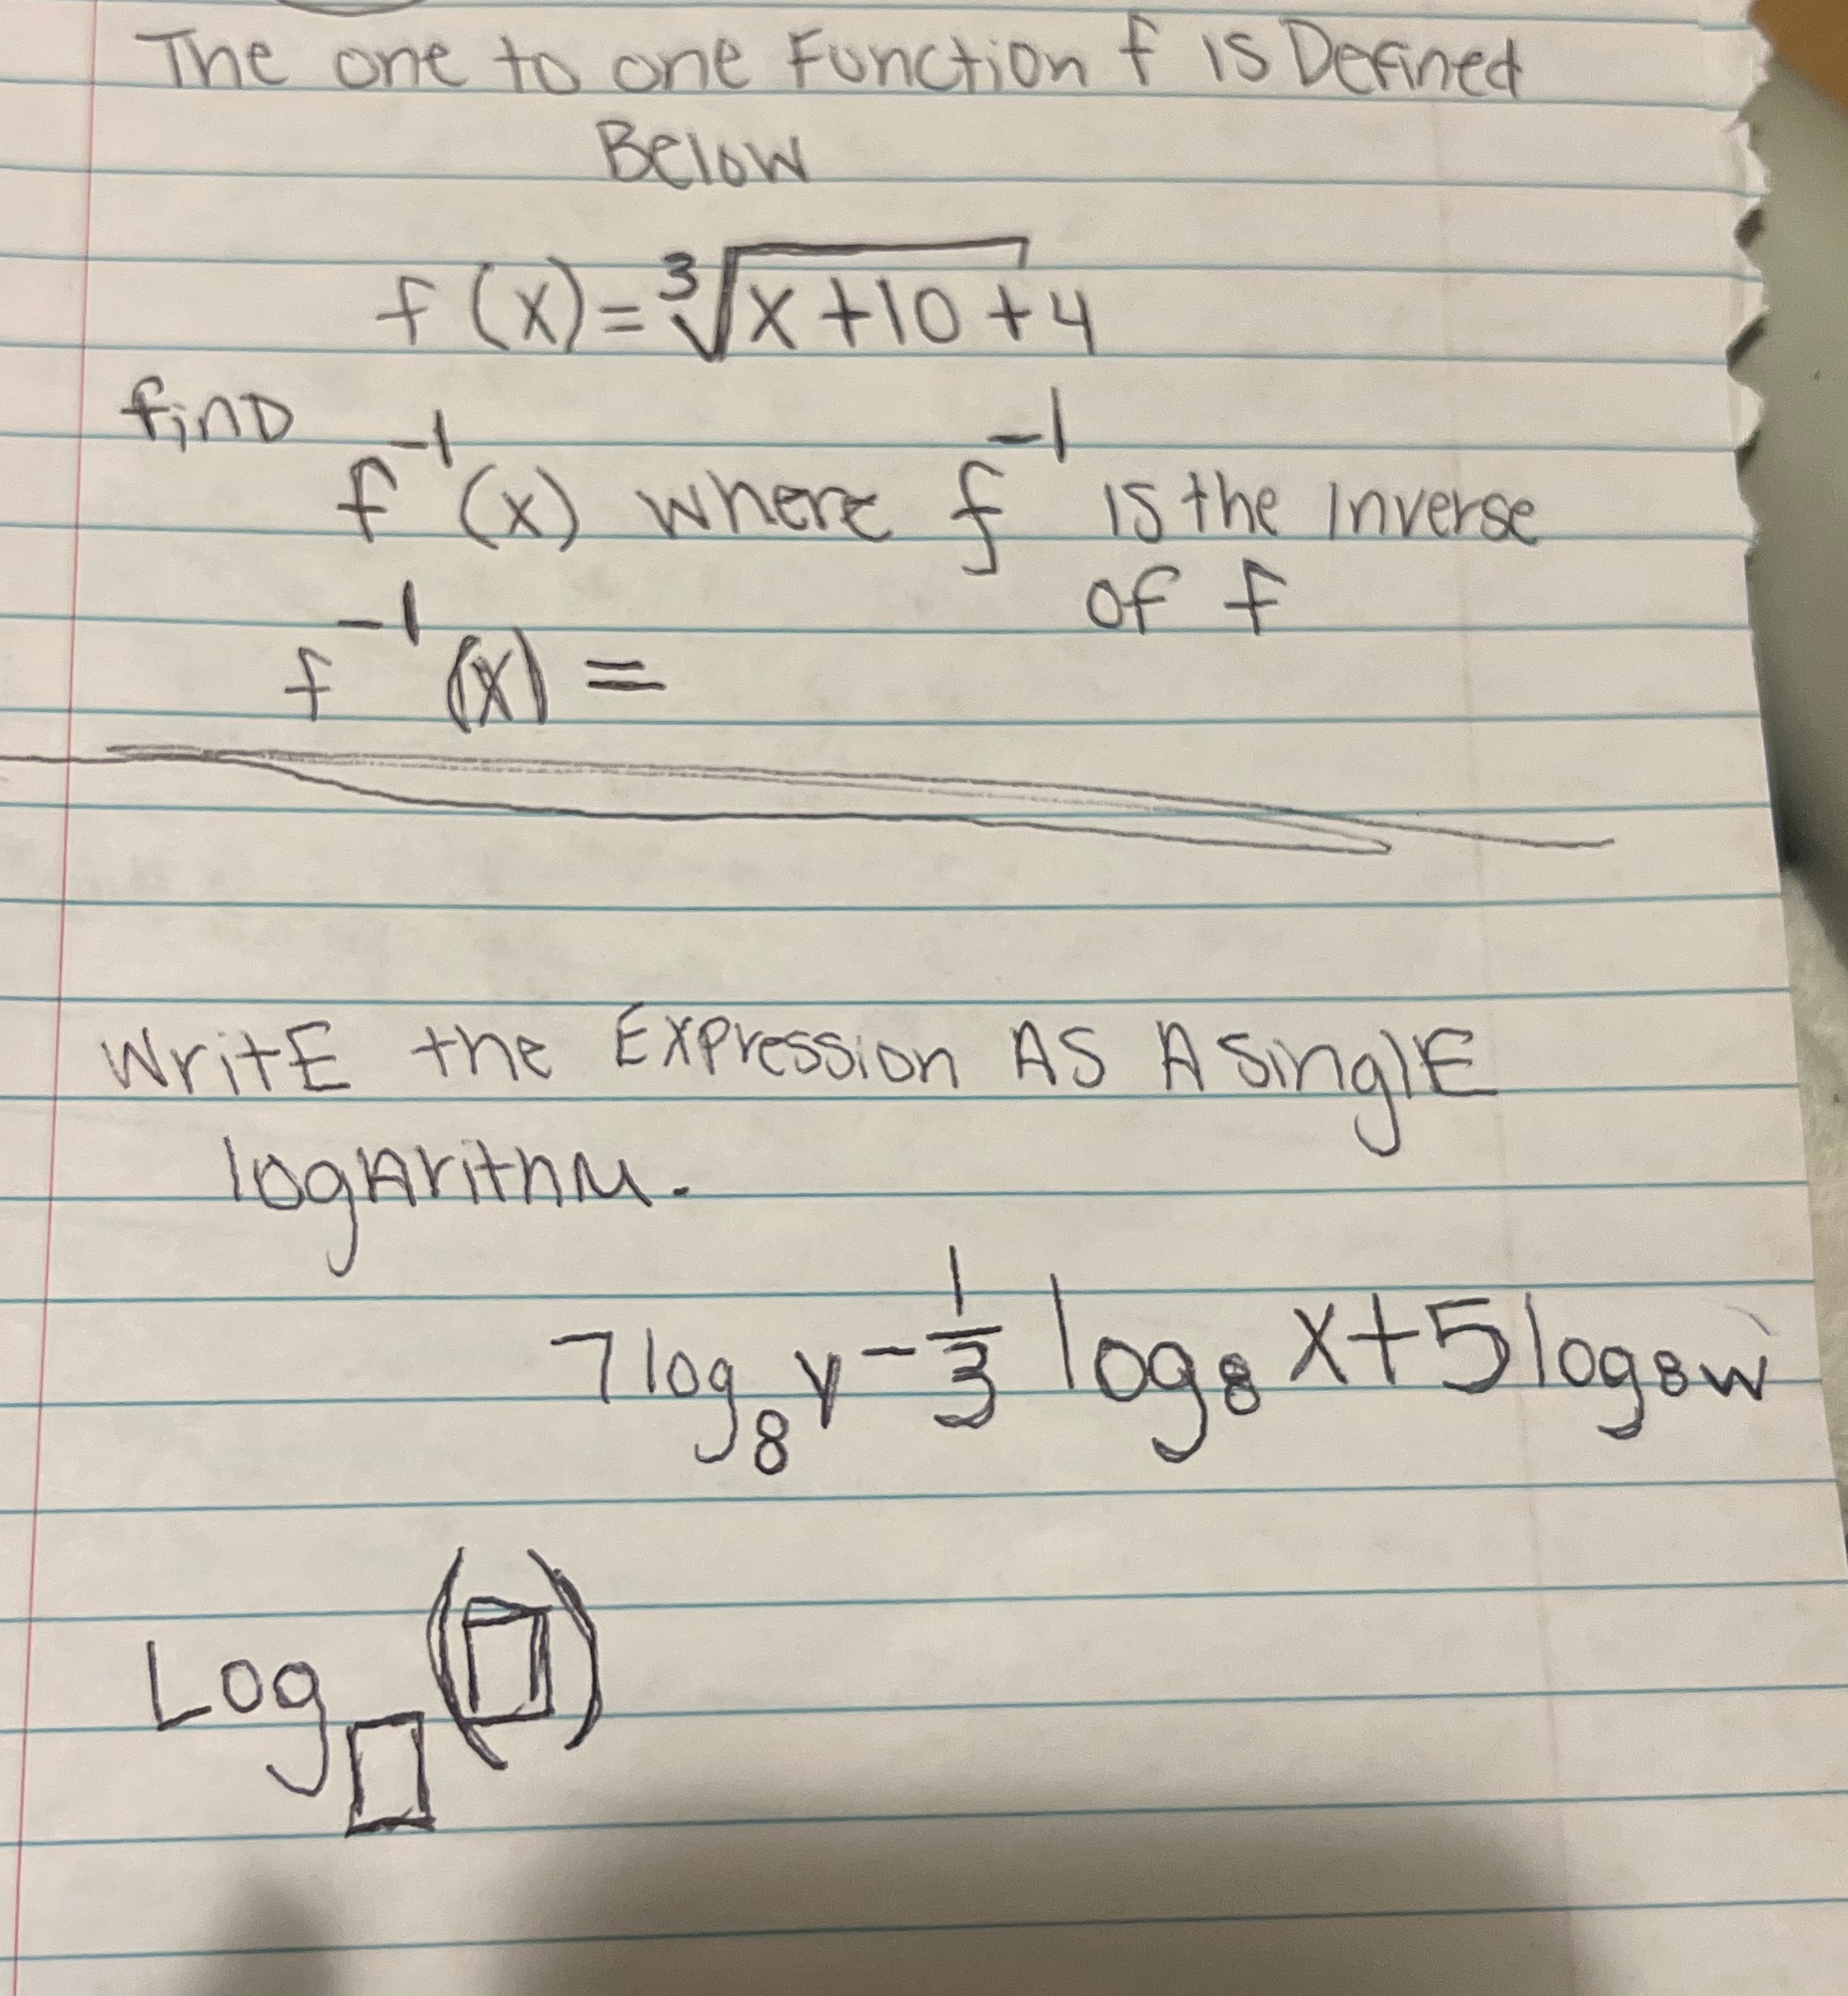 The one to one Function f is Defined
Below
f(x)=∛(x+10)+4
find
f⁻¹(x) where f⁻¹ is the inverse
of f
f⁻¹(x)=
WritE the Expression AS A SinglE
logArithm.
7log₈y-1/3 log₈x+5log₈w
Log□(□)